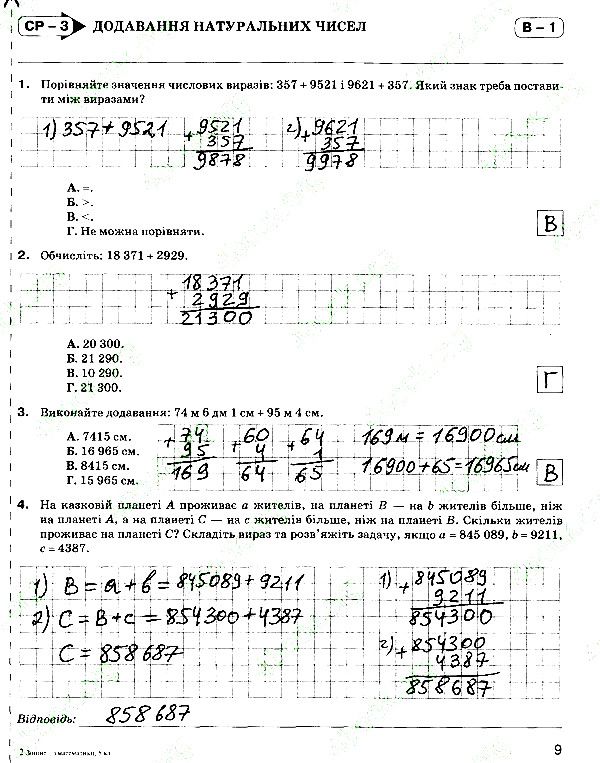 СР – 3 ДОДАВАННЯ НАТУРАЛЬНИХ ЧИСЕЛ В – 1
1. Порівняйте значення числових виразів: 357 + 9521 і 9621 + 357. Який знак треба постави-
ти між виразами?
1) 357 + 9521 9521 2) 9621
+ 357 + 357
9878 9978
А. =.
Б. >.
В. <.
Г. Не можна порівняти.
В
2. Обчисліть: 18 371 + 2929.
18 371
+ 2 929
21300
А. 20 300.
Б. 21 290.
В. 10 290.
Г. 21 300.
Г
3. Виконайте додавання: 74 м 6 дм 1 см + 95 м 4 см.
А. 7415 см.
Б. 16 965 см.
В. 8415 см.
Г. 15 965 см.
+ 74 + 60 + 64 169 м = 16900 см
95 4 1
169 64 65 16900 + 65 = 16965 см
В
4. На казковій планеті A проживає a жителів, на планеті B — на b жителів більше, ніж
на планеті A, а на планеті C — на c жителів більше, ніж на планеті B. Скільки жителів
проживає на планеті C? Складіть вираз та розв'яжіть задачу, якщо a = 845 089, b = 9211,
c = 4387.
1) B = a + b = 845089 + 9211
2) C = B + c = 854300 + 4387
C = 858687
1) + 845089
9211
854300
2) + 854300
4387
858687
Відповідь: 858687
9